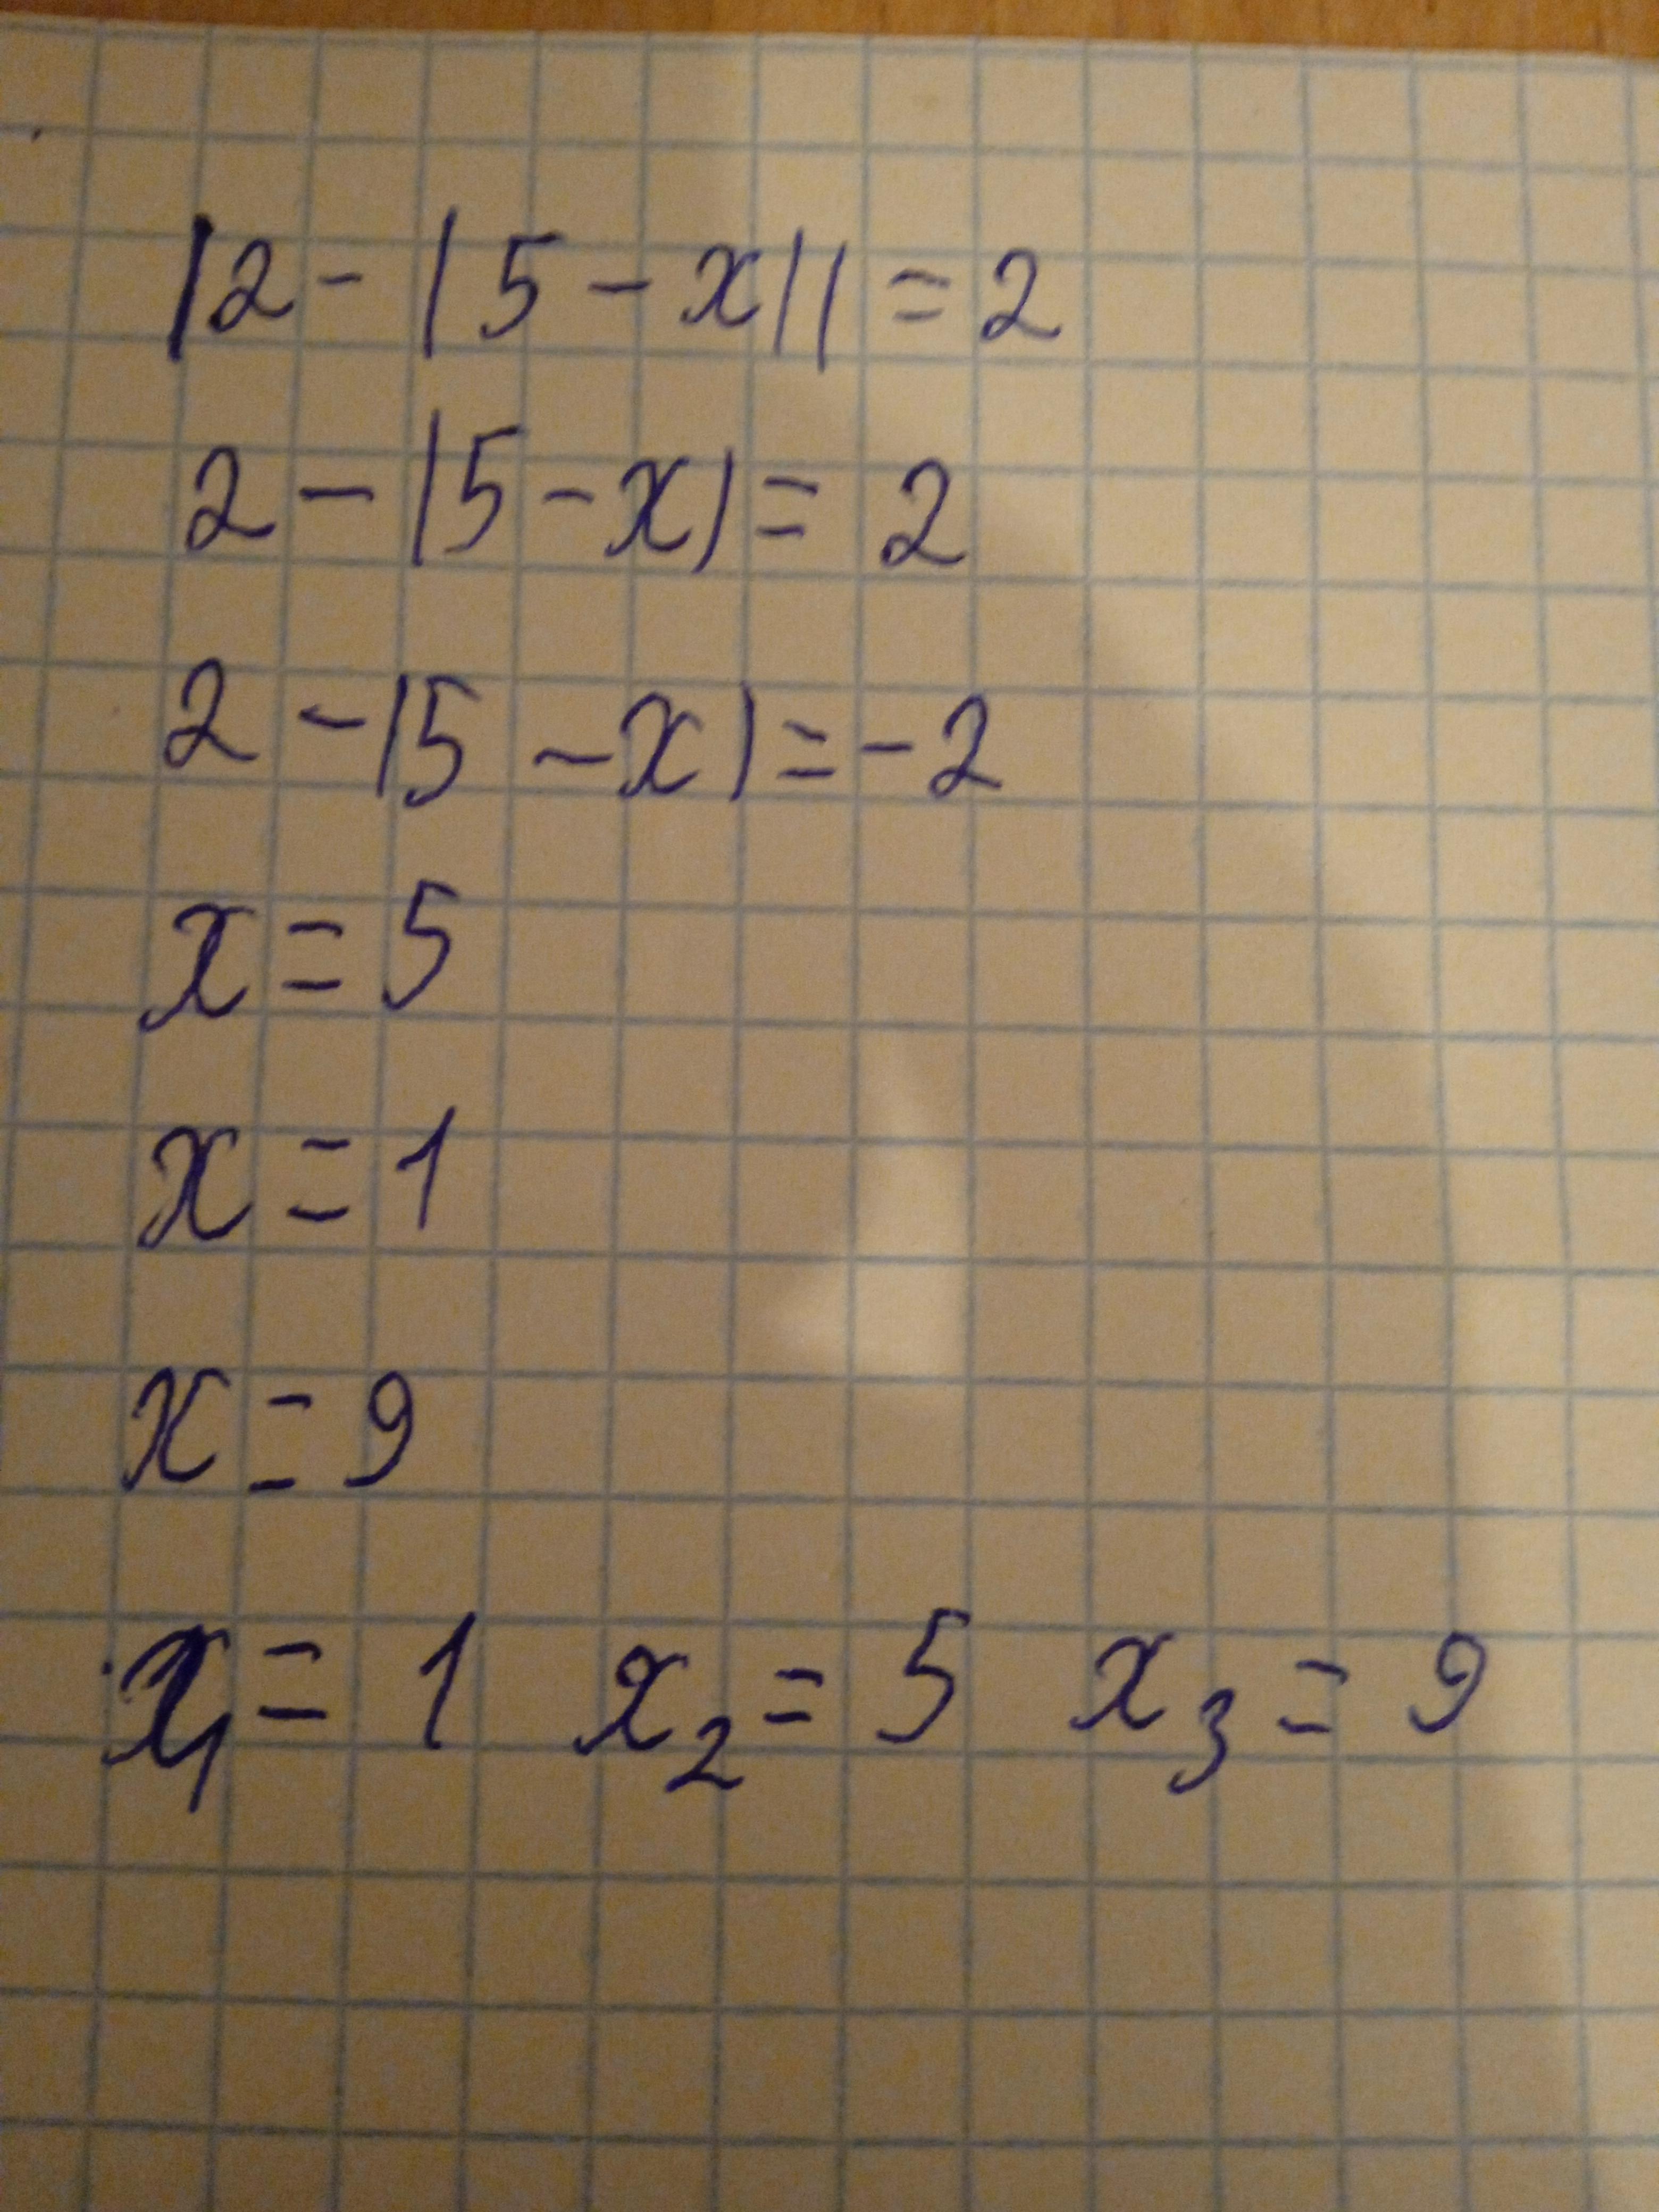 |2-|5-x||=2
2-|5-x|=2
2-|5-x|=-2
x=5
x=1
x=9
x₁=1 x₂=5 x₃=9